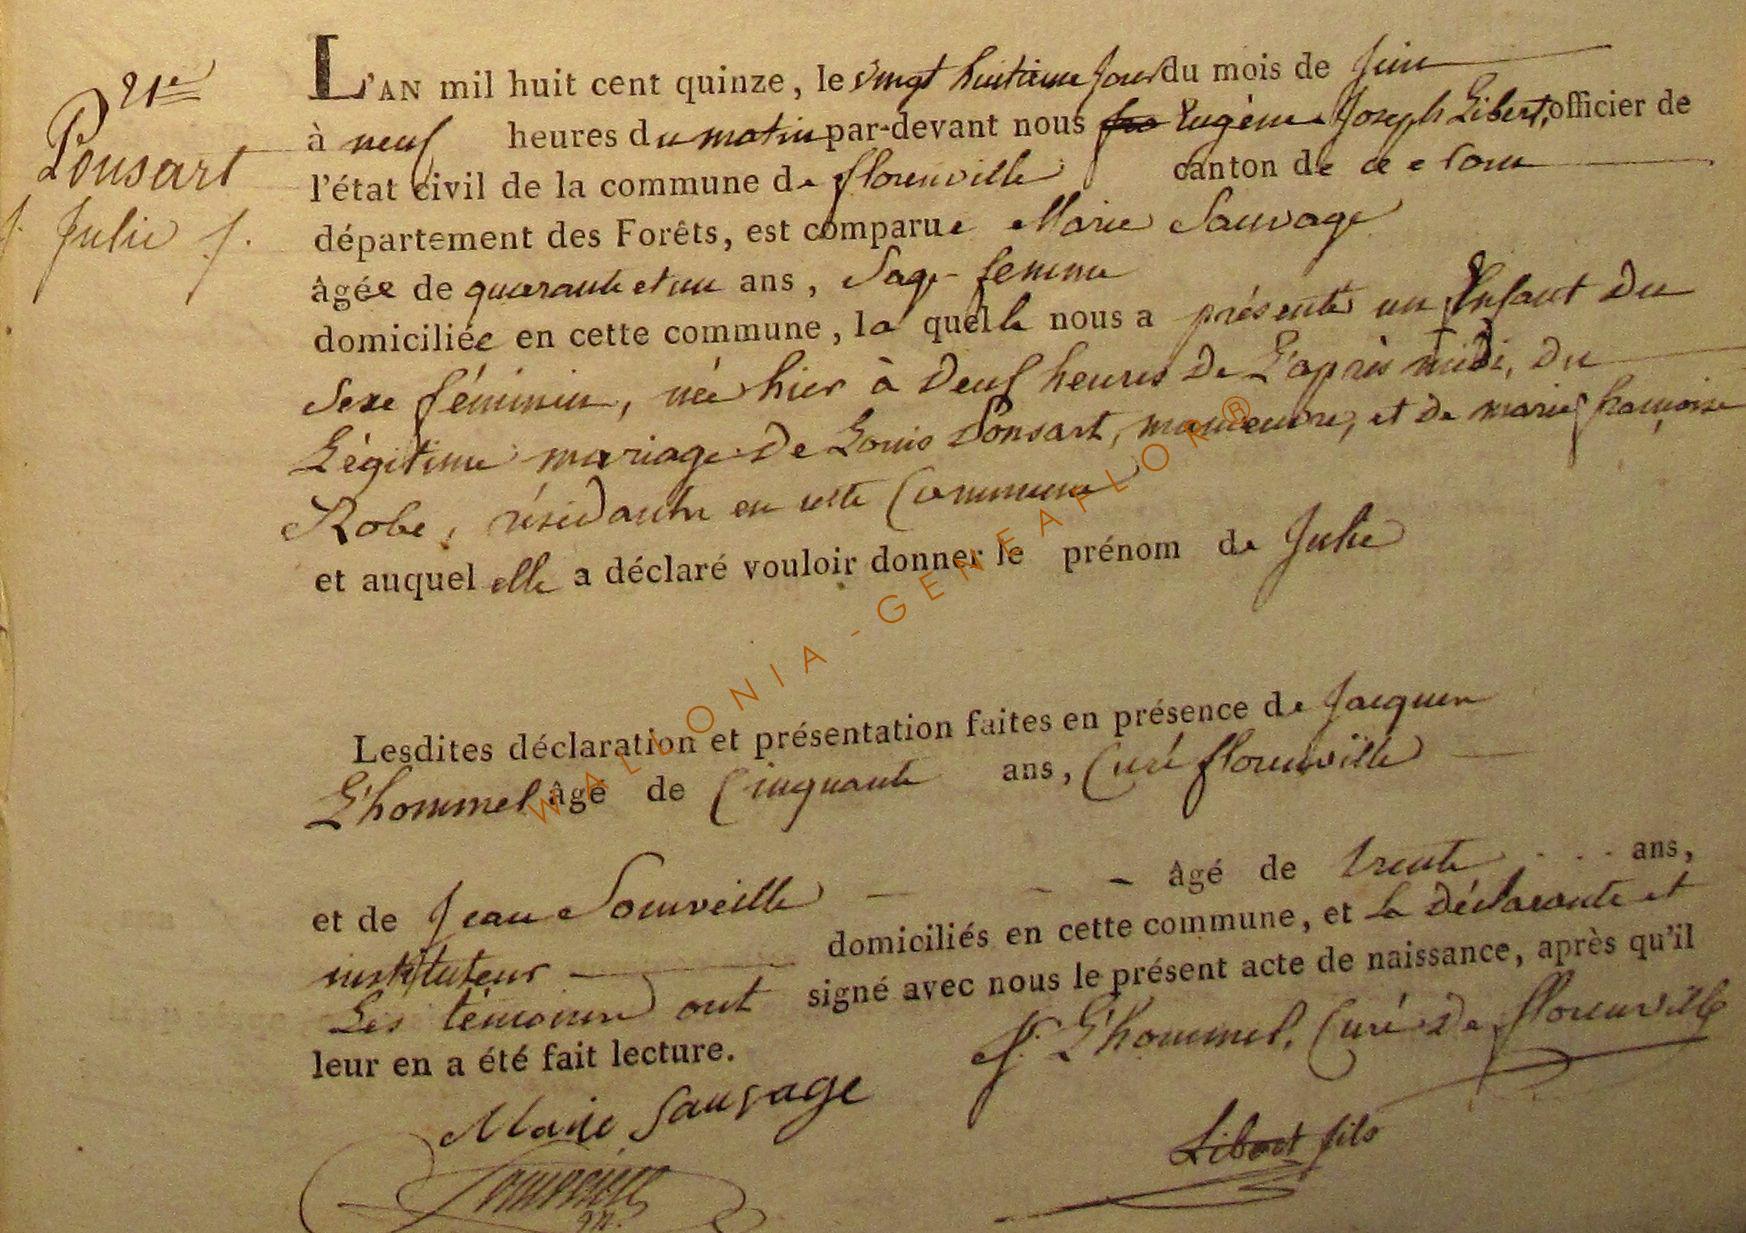 21e
Ponsart
Julie f.
L'AN mil huit cent quinze, le vingt huitieme jour du mois de Juin
à neuf heures du matin par-devant nous Eugène Joseph Libert, officier de
l'état civil de la commune de florenville canton de
département des Forêts, est comparue Marie Sauvage
âgée de quarante et un ans, Sage-femme
domiciliée en cette commune, la quelle nous a présenté un Enfant Du
Sexe féminin, née hier à Deux heures De L'après midi, Du
Légitime mariage De Louis Ponsart, manoeuvre, et de marie françoise
Robe, résidants en cette Commune
et auquel elle a déclaré vouloir donner le prénom de Julie
Lesdites déclaration et présentation faites en présence de Jacques
L'hommel âgé de Cinquante ans, Curé florenville
et de Jean Sourveille âgé de trente ans,
instituteur domiciliés en cette commune, et la Déclarante et
Les témoins ont signé avec nous le présent acte de naissance, après qu'il
leur en a été fait lecture.
J. L'hommel, Curé De florenville
Marie Sauvage
Libert fils
WALLONIA-GENEAFLOR®